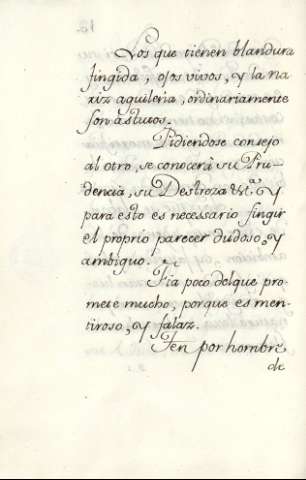 Los que tienen blandura
fingida, ojos vivos, y la na
riz aguileña, ordinariamente
son astutos.
Pidiendose consejo
al otro, se conocerà su Pru
dencia, su Destreza &c.ª y
para esto es necessario fingir
el proprio parecer dudoso, y
ambiguo.
Fia poco del que pro-
mete mucho, porque es men-
tiroso, y falaz.
Ten por hombre
de